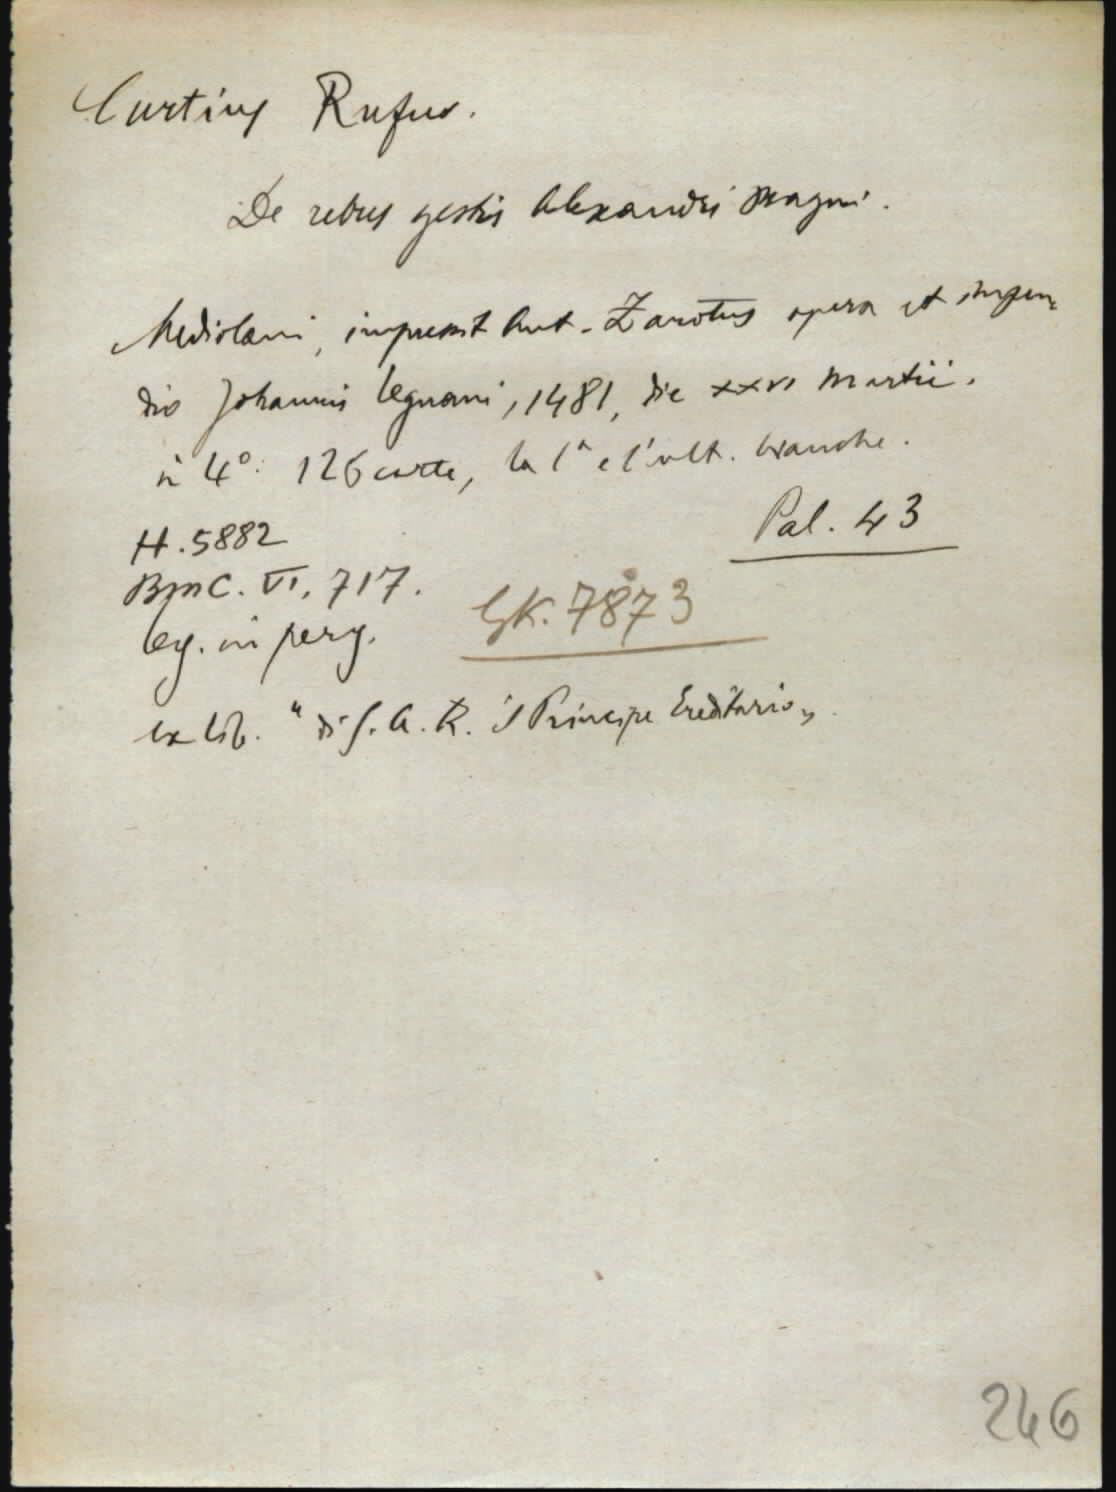 Curtius Rufus.
De rebus gestis Alexandri Magni.
Mediolani, impressit Ant. Zarotus opera et impen-
dio Johannis Legnani, 1481, die XXVI Martii.
in 4º. 126 carte, la 1ª e l'ult. bianche.
Pal. 43
H. 5882
BMC. VI, 717.
GK. 7873
leg. in perg.
ex lib. "di S. A. R. il Principe Ereditario„
246